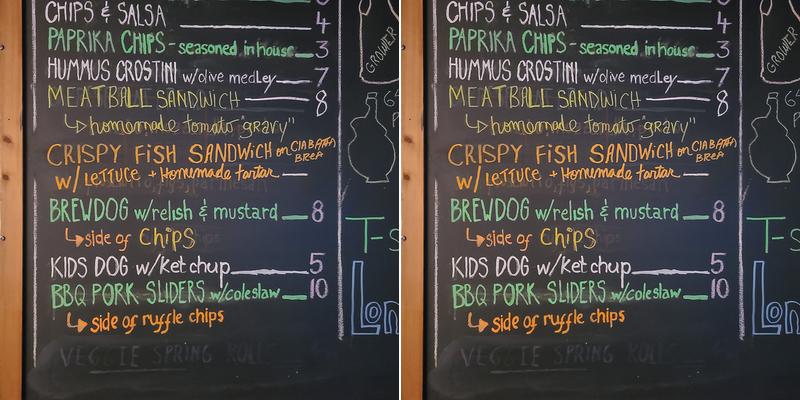 CHIPS & SALSA 4
PAPRIKA CHIPS - seasoned in house 3
HUMMUS CROSTINI w/olive medley 7
MEATBALL SANDWICH 8
homemade tomato "gravy"
CRISPY FISH SANDWICH on CIABATTA
BREA
w/ LETTUCE + Homemade tartar
BREWDOG w/relish & mustard 8
side of CHIPS
KIDS DOG w/ketchup 5
BBQ PORK SLIDERS w/coleslaw 10
side of ruffle chips
VEGGIE SPRING ROLL
T-S
Lon
CHIPS & SALSA 4
PAPRIKA CHIPS - seasoned in house 3
HUMMUS CROSTINI w/olive medley 7
MEATBALL SANDWICH 8
homemade tomato "gravy"
CRISPY FISH SANDWICH on CIABATTA
BREA
w/ LETTUCE + Homemade tartar
BREWDOG w/relish & mustard 8
side of CHIPS
KIDS DOG w/ketchup 5
BBQ PORK SLIDERS w/coleslaw 10
side of ruffle chips
VEGGIE SPRING ROLL
T-S
Lon